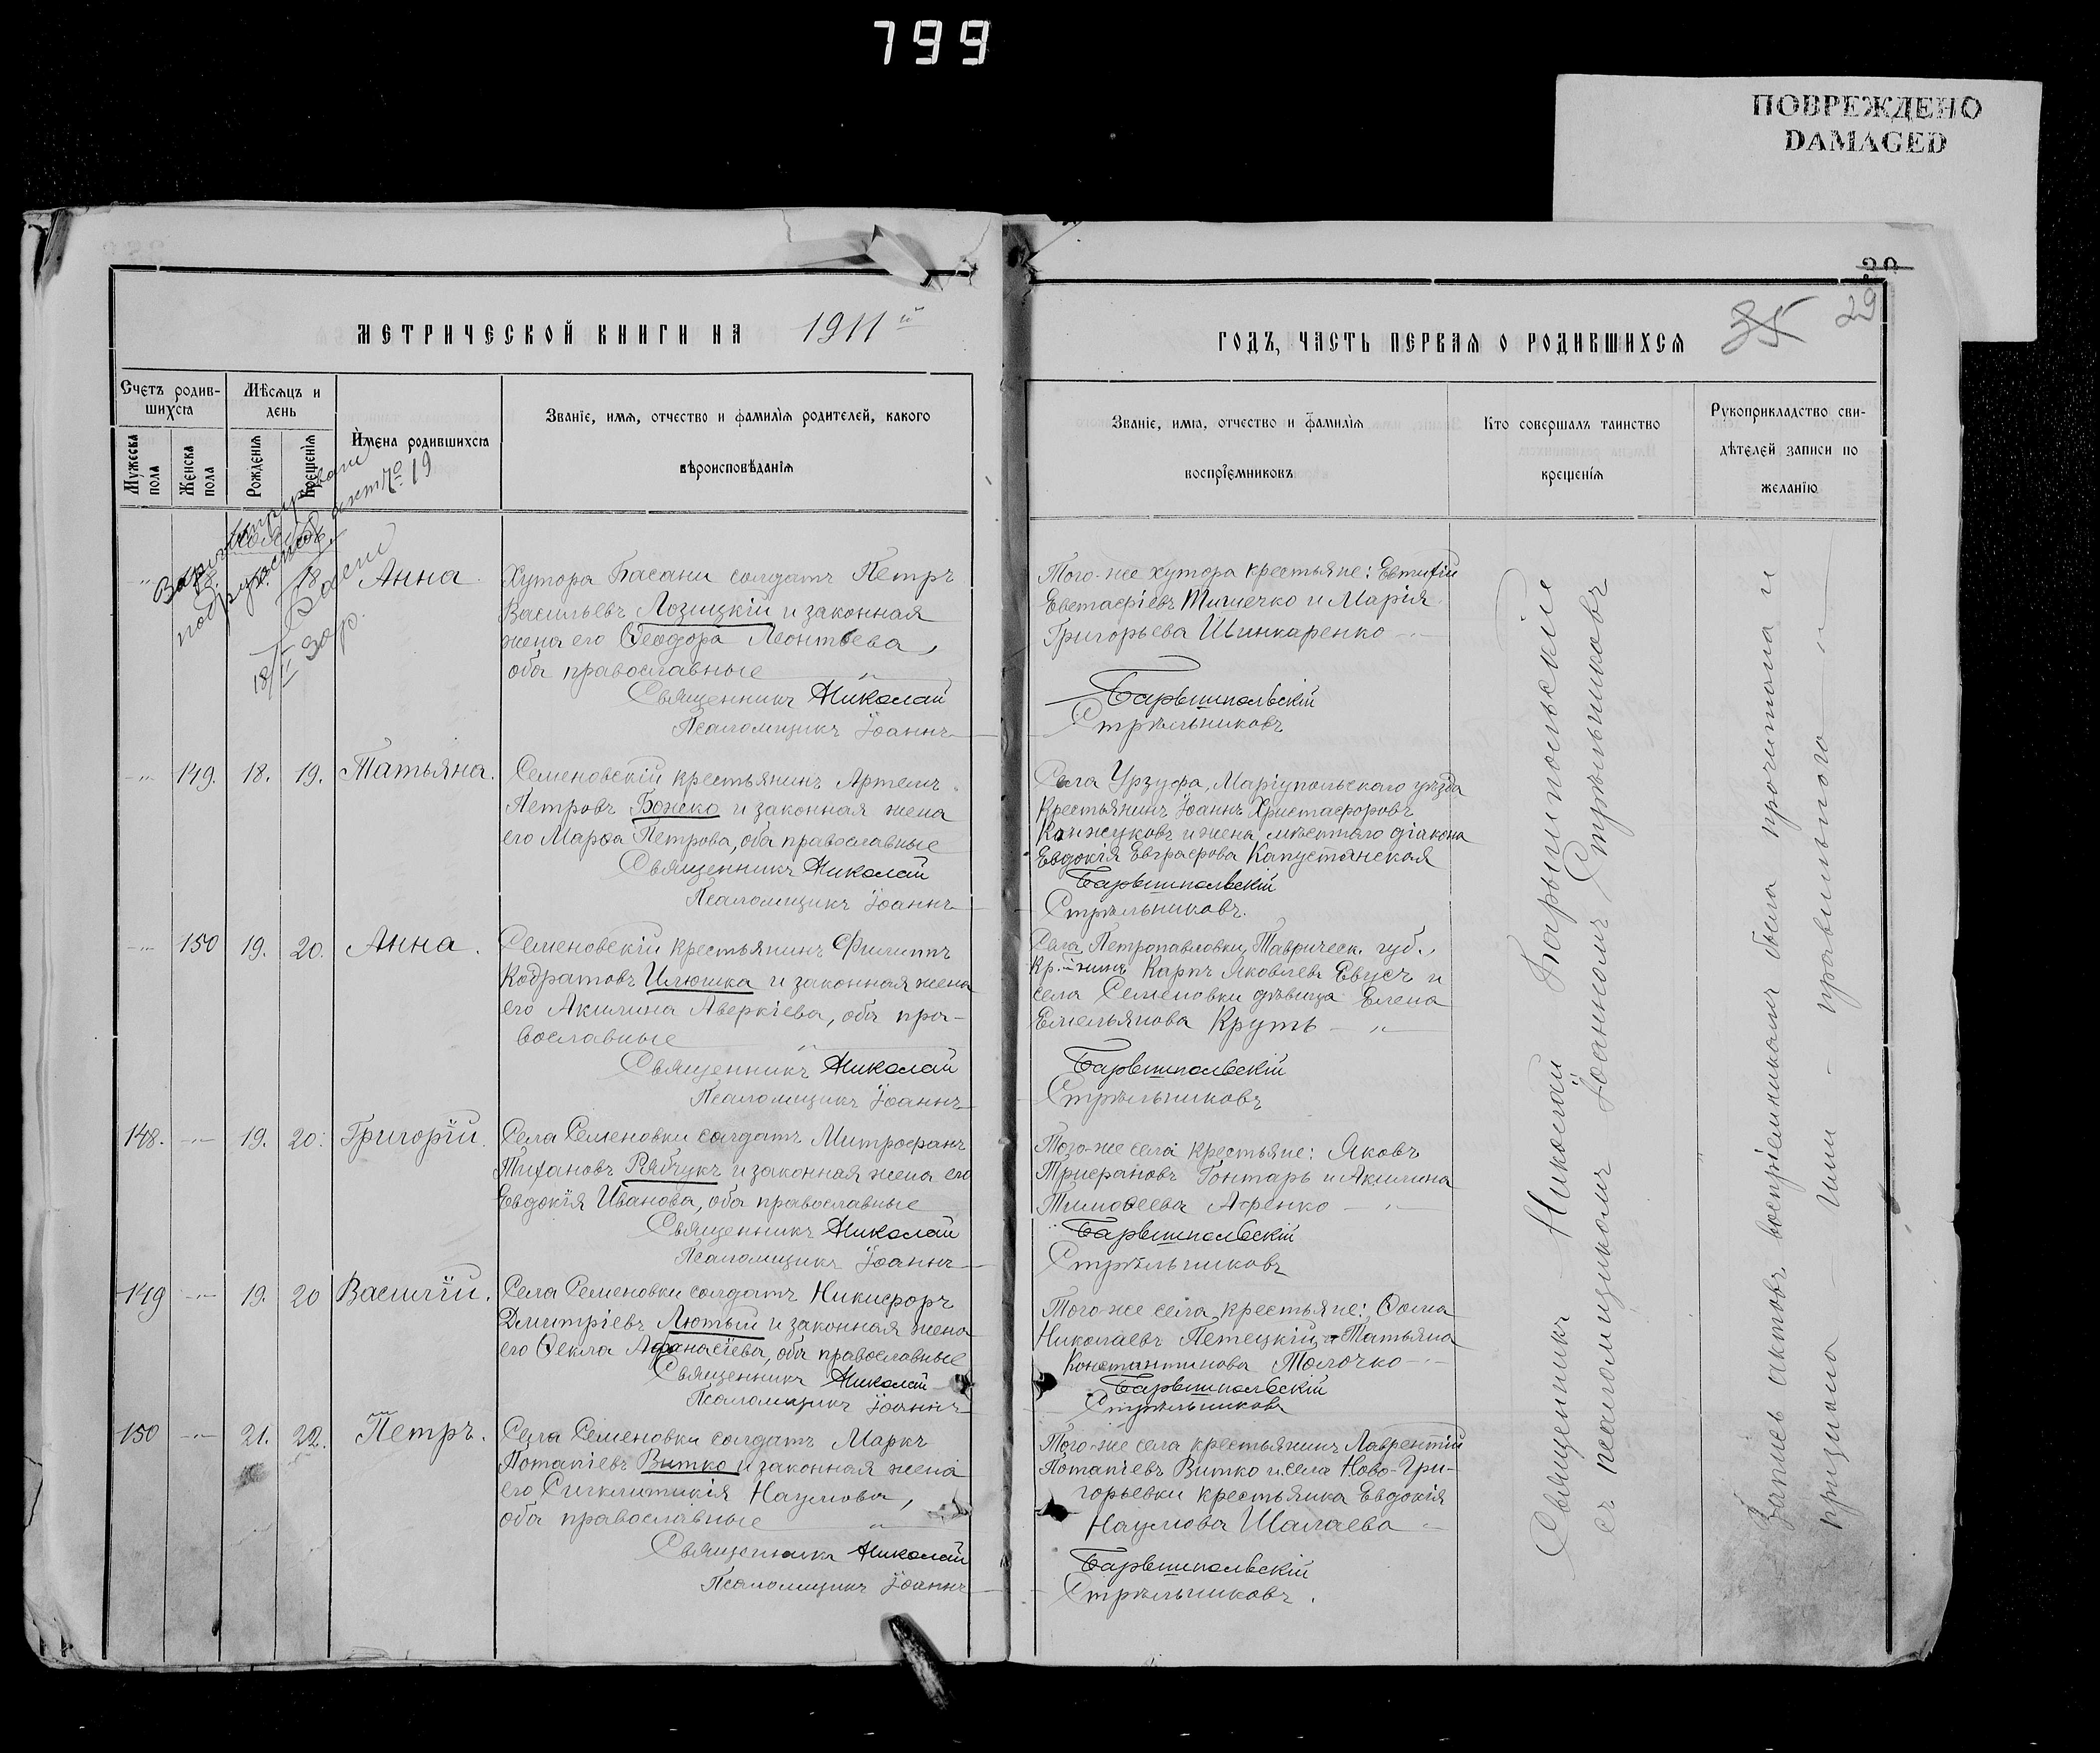 799
ПОВРЕЖДЕНО
DAMAGED
МЕТРИЧЕСКОЙ КНИГИ НА 1911й
Счетъ родившихся
Мѣсяцъ и день
Мужеска пола
Женска пола
Рожденія
Крещенія
Имена родившихся
Званіе, имя, отчество и фамилія родителей, какого
вѣроисповѣданія
актъ № 19
18.
Анна
Хутора Басани солдатъ Петръ
Васильевъ Лозицкій и законная
жена его Ѳеодора Леонтьева,
оба православные
Священникъ Николай
Псаломщикъ Іоаннъ
149. 18. 19. Татьяна.
Семеновскій крестьянинъ Артемъ
Петровъ Божко и законная жена
его Марѳа Петрова, оба православные
Священникъ Николай
Псаломщикъ Іоаннъ
150 19. 20. Анна.
Семеновскій крестьянинъ Филиппъ
Кодратовъ Илюшка и законная жена
его Акилина Аверкіева, оба пра-
вославные
Священникъ Николай
Псаломщикъ Іоаннъ
148. 19. 20. Григорій.
Села Семеновки солдатъ Митрофанъ
Тихановъ Рябчукъ и законная жена его
Евдокія Иванова, оба православные
Священникъ Николай
Псаломщикъ Іоаннъ
149 19. 20 Василій.
Села Семеновки солдатъ Никифоръ
Дмитріевъ Лютый и законная жена
его Ѳекла Афанасіева, оба православные
Священникъ Николай
Псаломщикъ Іоаннъ
150 21. 22. Петръ.
Села Семеновки солдатъ Маркъ
Потапіевъ Витко и законная жена
его Сигклитикія Наумова,
оба православные
Священникъ Николай
Псаломщикъ Іоаннъ
35 29
ГОДЪ, ЧАСТЬ ПЕРВАЯ О РОДИВШИХСЯ
Званіе, имя, отчество и фамилія
воспріемниковъ
Кто совершалъ таинство
крещенія
Рукоприкладство сви-
дѣтелей записи по
желанію
Того-же хутора крестьяне: Евтихій
Евстафіевъ Тимечко и Марія
Григорьева Шинкаренко
Барышпольскій
Стрѣльниковъ
Села Урзуфа, Маріупольскаго уѣзда
крестьянинъ Іоаннъ Христафоровъ
и жена мѣстнаго діакона
Евдокія Евграфова Капустянская
Барышпольскій
Стрѣльниковъ.
Села Петропавловки, Таврическ. губ.,
Кр.-нинъ Карпъ Яковлевъ Евусъ и
села Семеновки дѣвица Елена
Емельянова Круть
Барышпольскій
Стрѣльниковъ
Того-же села крестьяне: Яковъ
Трифановъ Гонтарь и Акилина
Тимоѳеева Афенко
Барышпольскій
Стрѣльниковъ
Того-же села крестьяне: Ѳома
Николаевъ Петецкій и Татьяна
Константинова Толочко
Барышпольскій
Стрѣльниковъ
Того-же села крестьянинъ Лаврентій
Потапіевъ Витко и села Ново-Гри-
горьевки крестьянка Евдокія
Наумова Шалаева
Барышпольскій
Стрѣльниковъ.
Священникъ Николай Барышпольскій
съ псаломщикомъ Іоанномъ Стрѣльниковъ
Запись актовъ воспріемниками была прочитана и
признана ими правильною